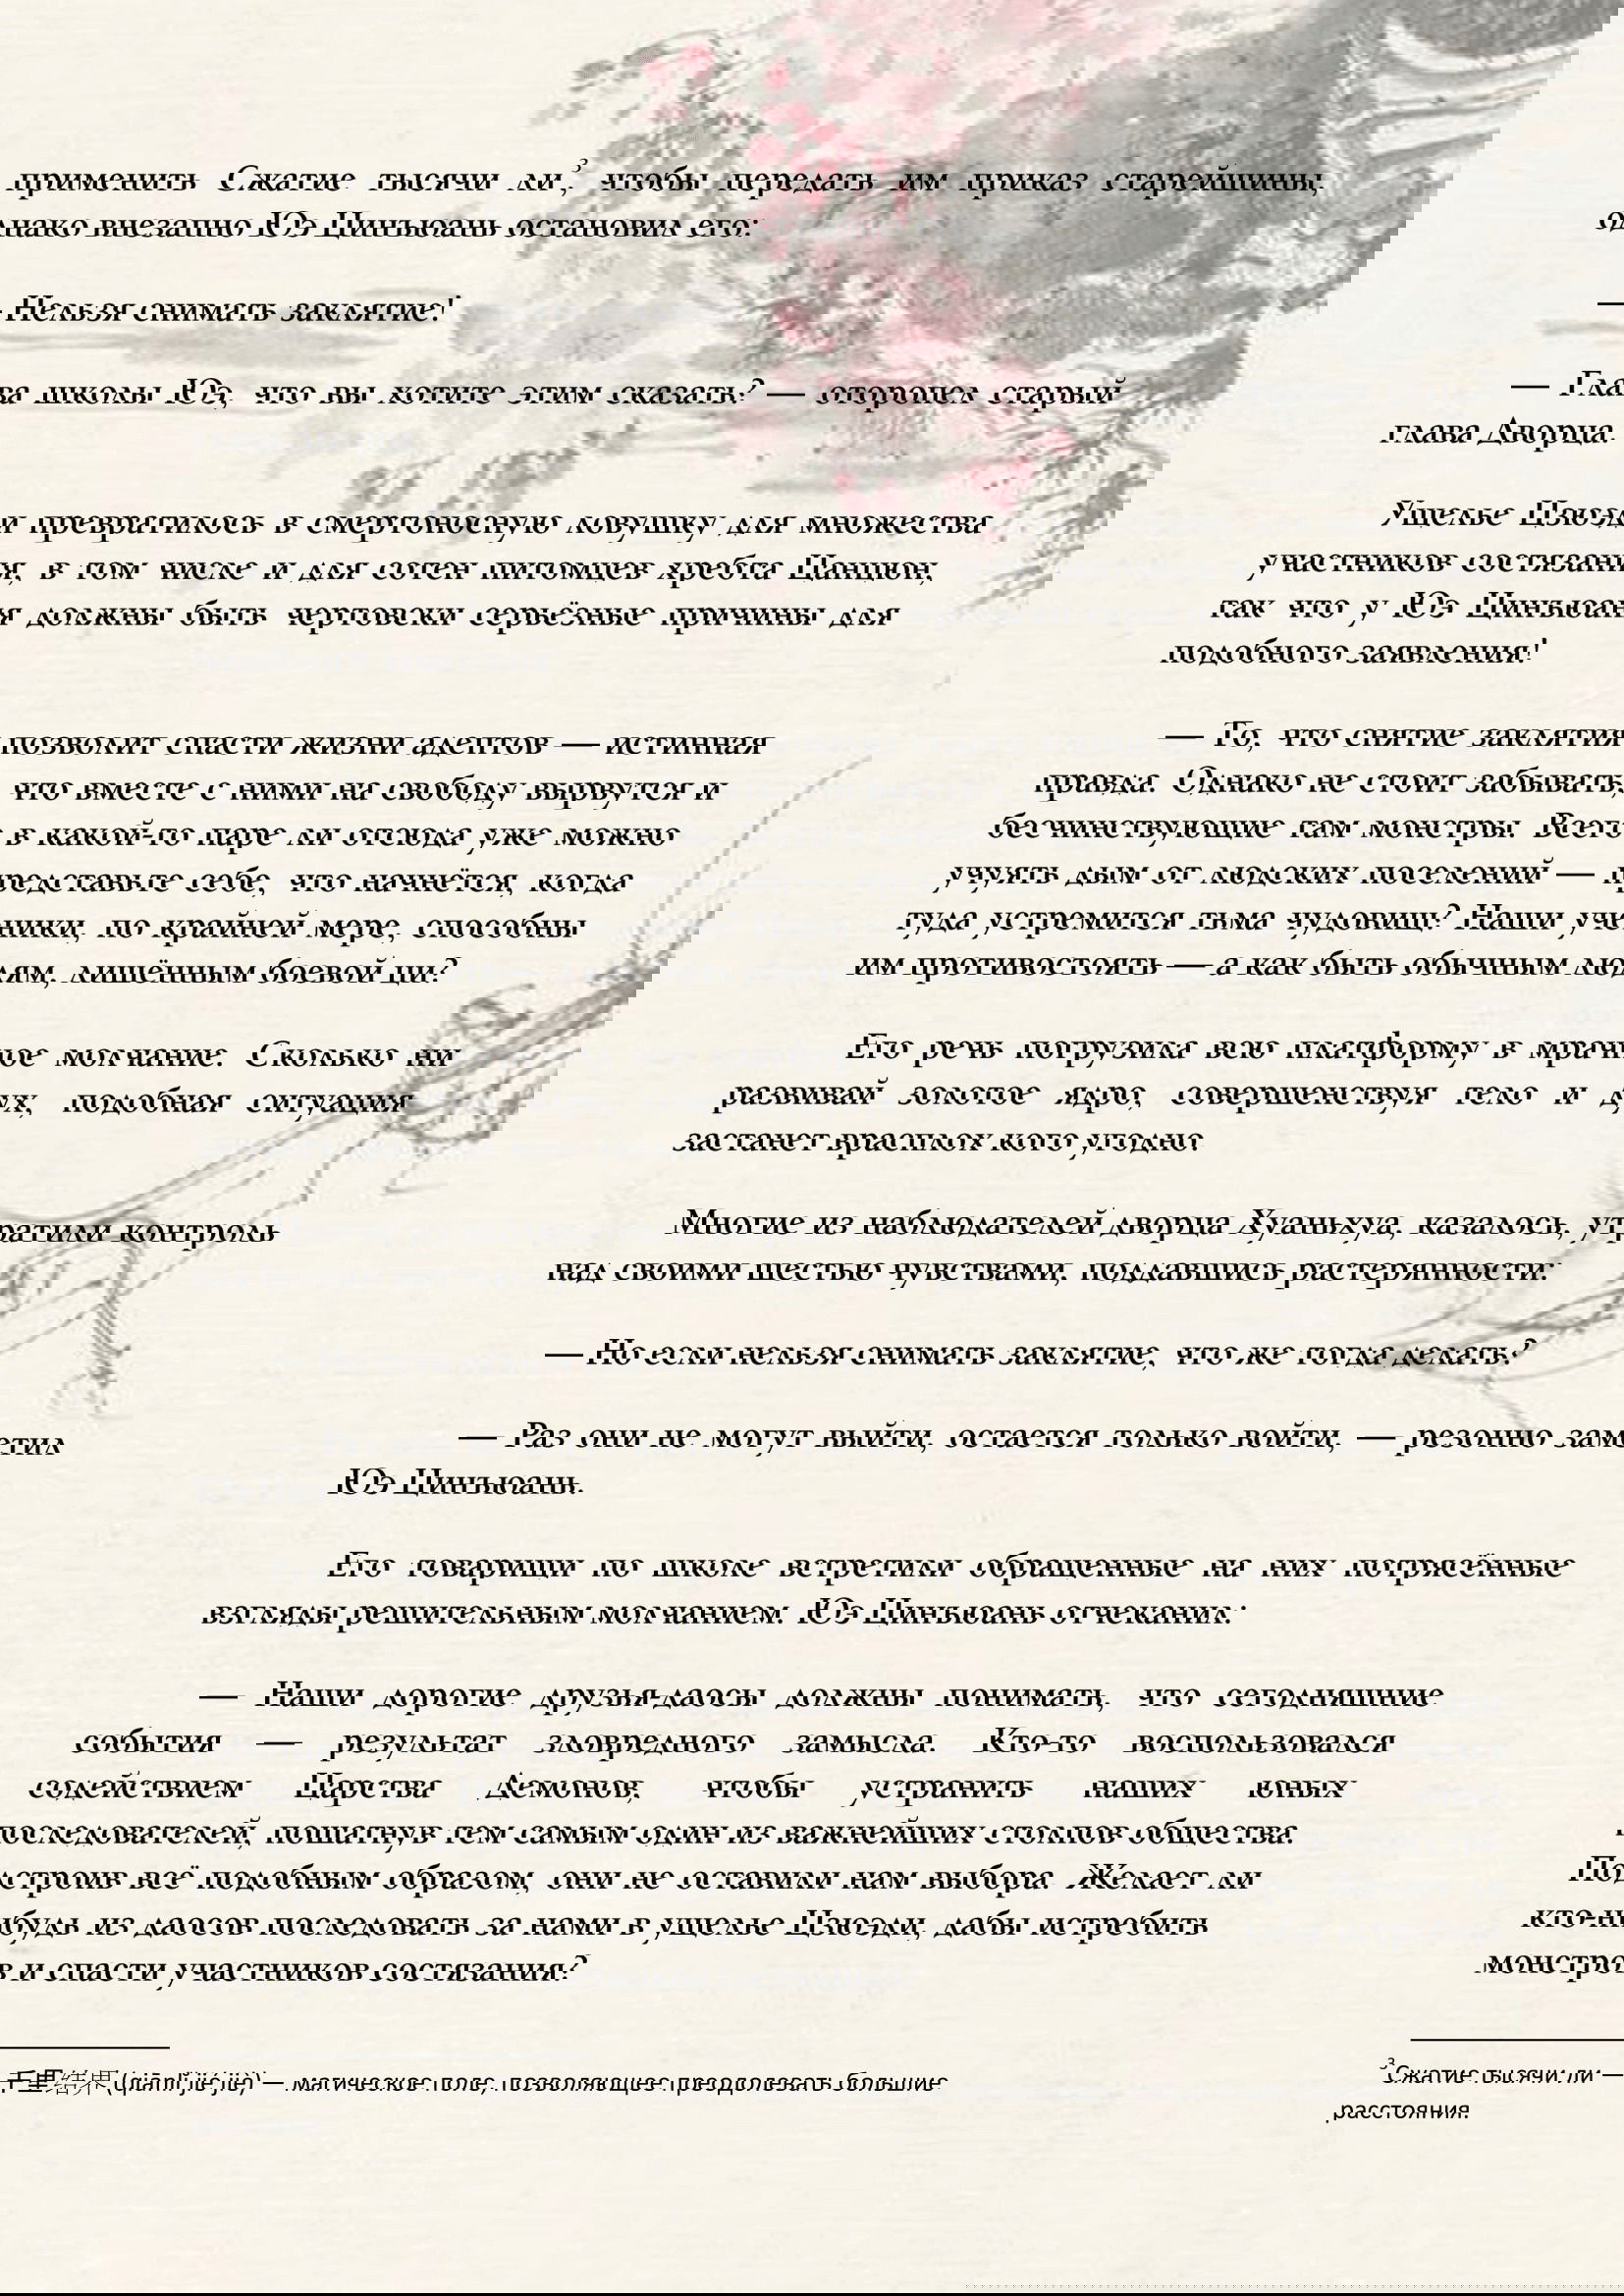 применить Сжатие тысячи ли,³ чтобы передать им приказ старейшины,
однако внезапно Юэ Цинъюань остановил его:
— Нельзя снимать заклятие!
— Глава школы Юэ, что вы хотите этим сказать? — оторопел старый
глава Дворца.
Ущелье Цзюэди превратилось в смертоносную ловушку для множества
участников состязания, в том числе и для сотен питомцев хребта Цанцюн,
так что у Юэ Цинъюаня должны быть чертовски серьёзные причины для
подобного заявления!
— То, что снятие заклятия позволит спасти жизни адептов — истинная
правда. Однако не стоит забывать, что вместе с ними на свободу вырвутся и
бесчинствующие там монстры. Всего в какой-то паре ли отсюда уже можно
учуять дым от людских поселений — представьте себе, что начнётся, когда
туда устремится тьма чудовищ? Наши ученики, по крайней мере, способны
им противостоять — а как быть обычным людям, лишённым боевой ци?
Его речь погрузила всю платформу в мрачное молчание. Сколько ни
развивай золотое ядро, совершенствуя тело и дух, подобная ситуация
застанет врасплох кого угодно.
Многие из наблюдателей дворца Хуаньхуа, казалось, утратили контроль
над своими шестью чувствами, поддавшись растерянности:
— Но если нельзя снимать заклятие, что же тогда делать?
— Раз они не могут выйти, остается только войти, — резонно заметил
Юэ Цинъюань.
Его товарищи по школе встретили обращенные на них потрясённые
взгляды решительным молчанием. Юэ Цинъюань отчеканил:
— Наши дорогие друзья-даосы должны понимать, что сегодняшние
события — результат зловредного замысла. Кто-то воспользовался
содействием Царства Демонов, чтобы устранить наших юных
последователей, пошатнув тем самым один из важнейших столпов общества.
Подстроив всё подобным образом, они не оставили нам выбора. Желает ли
кто-нибудь из даосов последовать за нами в ущелье Цзюэди, дабы истребить
монстров и спасти участников состязания?
³ Сжатие тысячи ли — 千里结界 (qiānlǐ jiéjiè) — магическое поле, позволяющее преодолевать большие
расстояния.